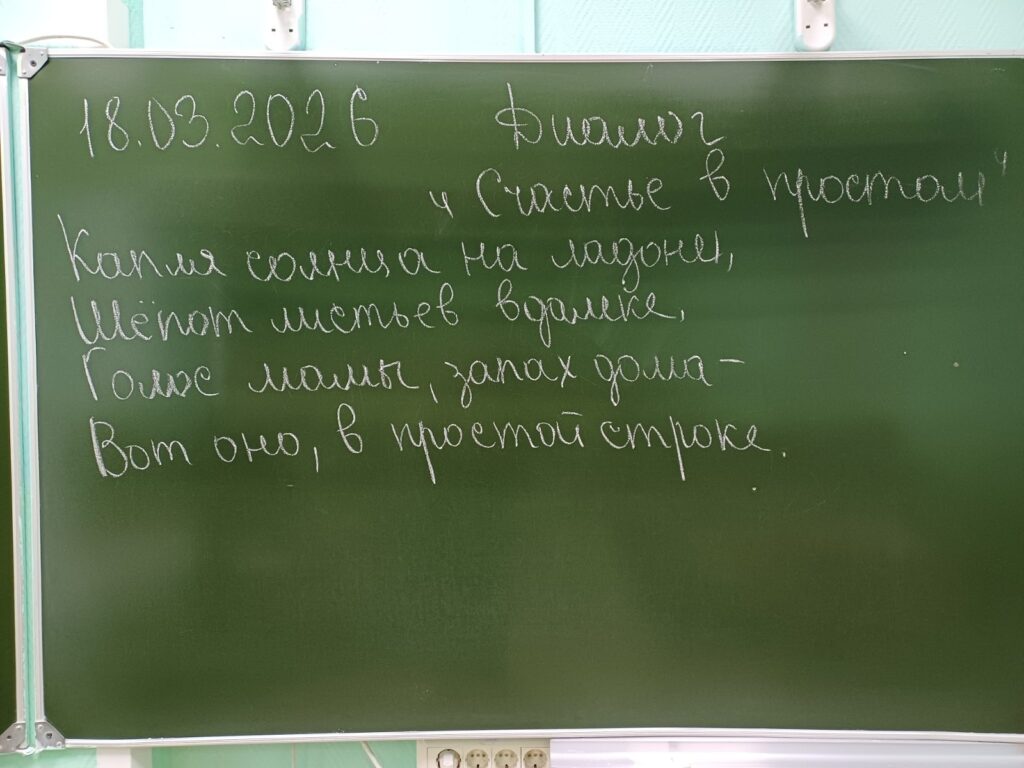 18.03.2026 Диалог
"Счастье в простом"
Капля солнца на ладони,
Шёпот листьев вдалеке,
Голос мамы, запах дома –
Вот оно, в простой строке.